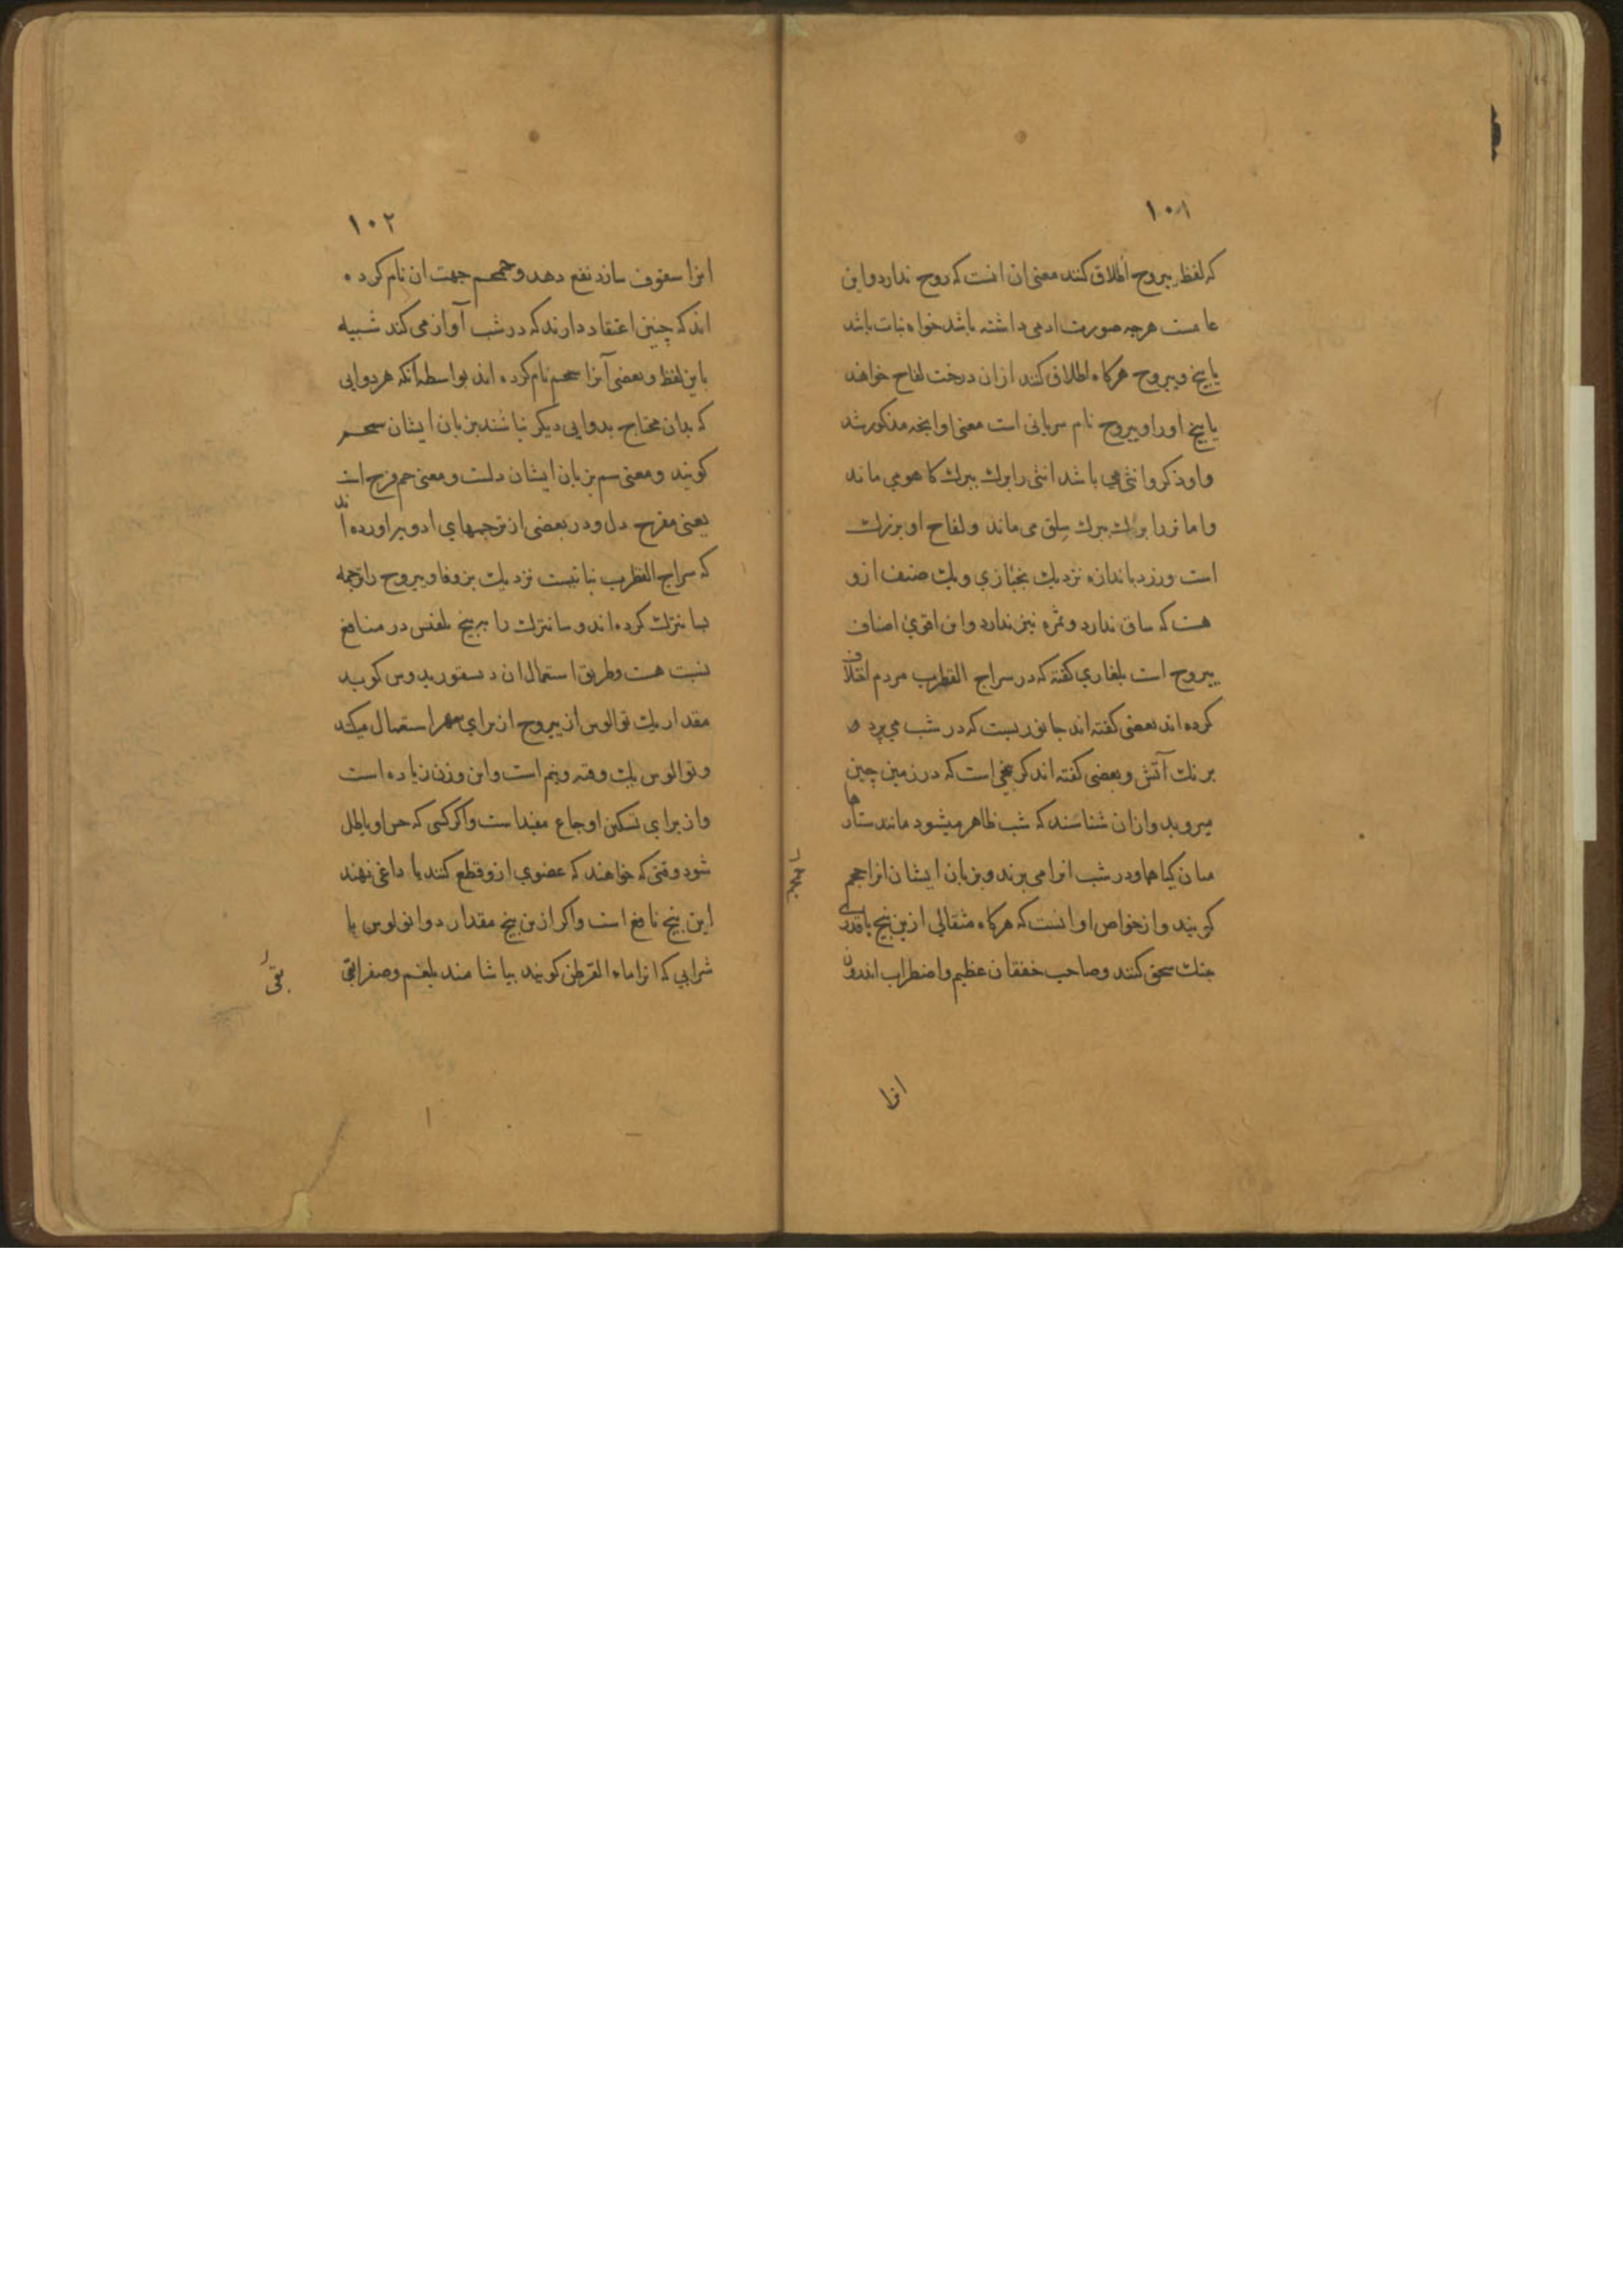 ۱۰۱
که لفظ یبروح اطلاق کنند معنی ان انست که روح ندارد واین
عامست هرچه صورت ادمی داشته باشد خواه نبات باشد
یا بیخ ویبروح هرکاه اطلاق کنند ازان درخت لفاح خواهند
یا بیخ اورا ویبروح نام سریانی است معنی او انچه مذکور شد
واو ذکر وانثی می باشد انثی را برك ببرك کاهو می ماند
واما نر را برك ببرك سلق می ماند ولفاح او بزرك
است وزرد باندازه نزدیك بخبازی ویك صنف ازو
هست که ساق ندارد وثمره نیز ندارد واین اقوی اصناف
یبروح است بلغاری کفته که در سراج القطرب مردم اختلاف
کرده اند بعضی کفته اند جانوریست که در شب می پرد
برنك آتش وبعضی کفته اند که بیخی است که در زمین چین
میروید وازان شناسند که شب ظاهر میشود مانند ستارها
میان کیاهها ودر شب انرا می برند وبزبان ایشان انرا
کویند واز خواص او انست که هرکاه مثقالی ازین بیخ باقدری
سحق کنند وصاحب خفقان عظیم واضطراب اندرون
انرا
۱۰۲
انرا سفوف سازد نفع دهد جهت ان نام کرده
اند که چنین اعتقاد دارند که در شب آواز می کند شبیه
باین لفظ وبعضی آنرا سمحم نام کرده اند بواسطه آنکه هر دوایی
که بدان محتاج بدوایی دیکر نباشند بزبان ایشان سمحم
کویند ومعنی سم بزبان ایشان دلست ومعنی حم فرح است
یعنی مفرح دل ودر بعضی از ترجمهای ادویه اورده اند
که سراج القطرب نباتیست نزدیك بزوفا ویبروح را ترجمه
کرده اند را ببیخ در منافع
نسبت هست وطریق استعمال ان دیسقوریدوس کوید
مقدار یك از یبروح از برای استعمال میکند
یك وقیه ونیم است واین وزن زیاده است
واز برای تسکین اوجاع مفید است واکر کسی که حس او باطل
شود وقتی که خواهند که عضوی ازو قطع کنند یا داغی نهند
این بیخ نافع است واکر ازین بیخ مقدار دو یا
شرابی که انرا ماء القرطن کویند بیاشامند بلغم وصفرا
بقی